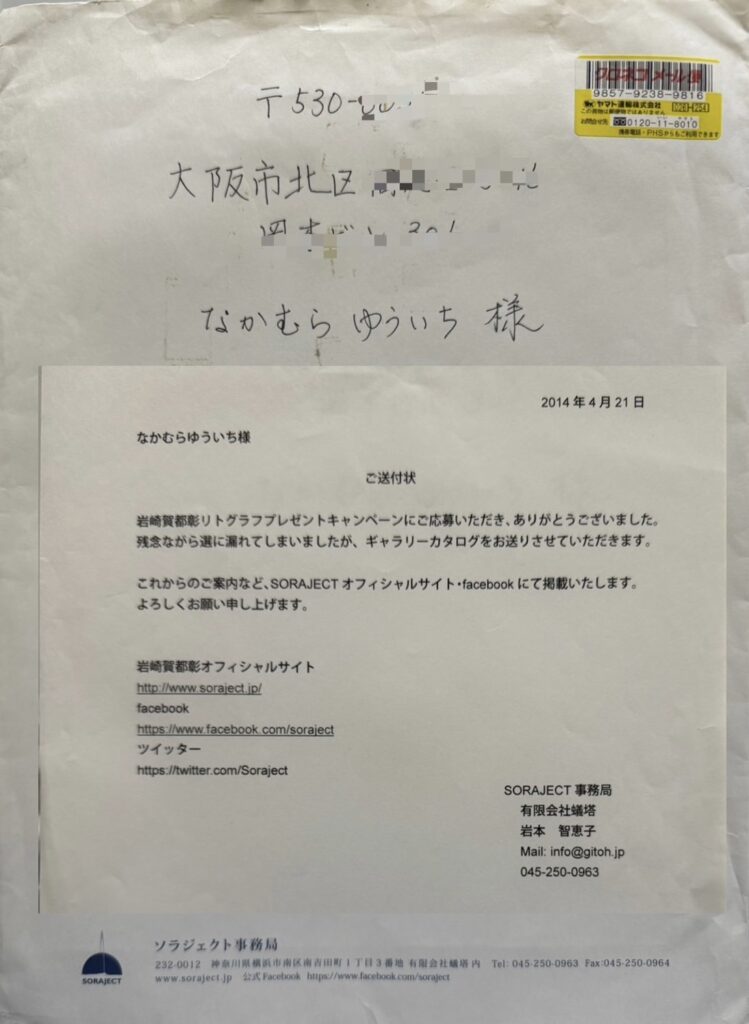 クロネコ メール便
9857-9238-9816
ヤマト運輸株式会社
この荷物は郵便物ではありません
お問合せ先 0120-11-8010
携帯電話・PHSからもご利用できます
〒530-
大阪市北区
なかむら ゆういち 様
2014 年 4 月 21 日
なかむらゆういち様
ご送付状
岩崎賀都彰リトグラフプレゼントキャンペーンにご応募いただき、ありがとうございました。
残念ながら選に漏れてしまいましたが、ギャラリーカタログをお送りさせていただきます。
これからのご案内など、SORAJECT オフィシャルサイト・facebook にて掲載いたします。
よろしくお願い申し上げます。
岩崎賀都彰オフィシャルサイト
http://www.soraject.jp/
facebook
https://www.facebook.com/soraject
ツイッター
https://twitter.com/Soraject
SORAJECT 事務局
有限会社蟻塔
岩本 智恵子
Mail: info@gitoh.jp
045-250-0963
SORAJECT
ソラジェクト事務局
232-0012 神奈川県横浜市南区南吉田町1丁目3番地 有限会社蟻塔 内 Tel: 045-250-0963 Fax:045-250-0964
www.soraject.jp 公式Facebook https://www.facebook.com/soraject